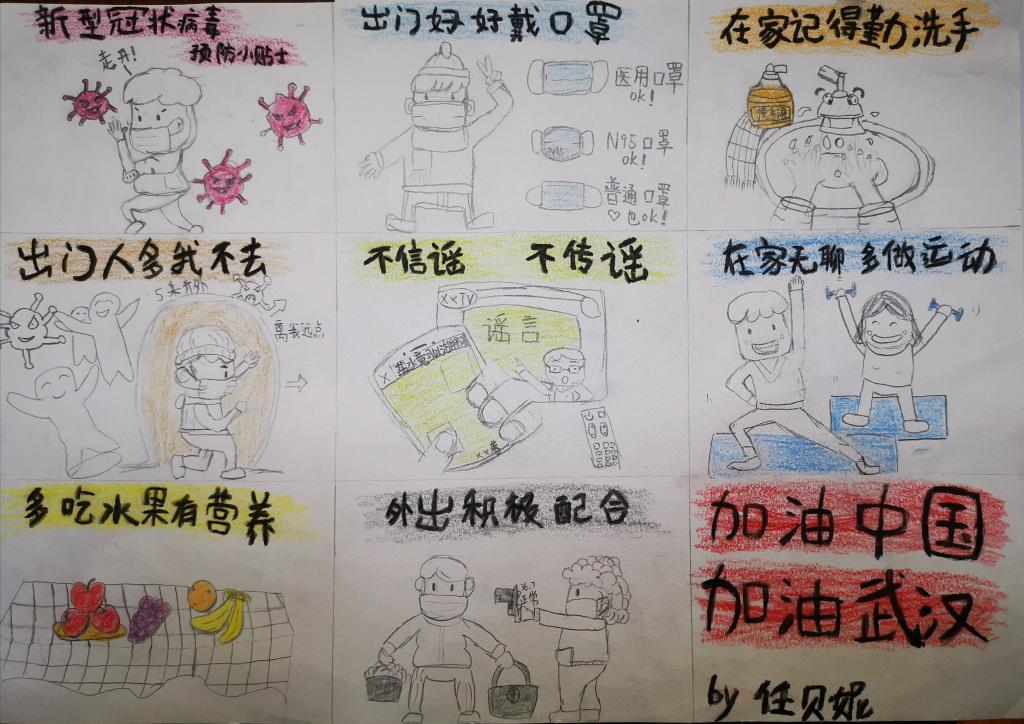 新型冠状病毒
预防小贴士
走开!
出门好好戴口罩
医用口罩
ok!
N95口罩
ok!
普通口罩
♡也ok!
N95
在家记得勤洗手
出门人多我不去
5米开外
离我远点
不信谣 不传谣
XXTV
谣言
在家无聊多做运动
多吃水果有营养
外出积极配合
正常
加油中国
加油武汉
by 任贝妮